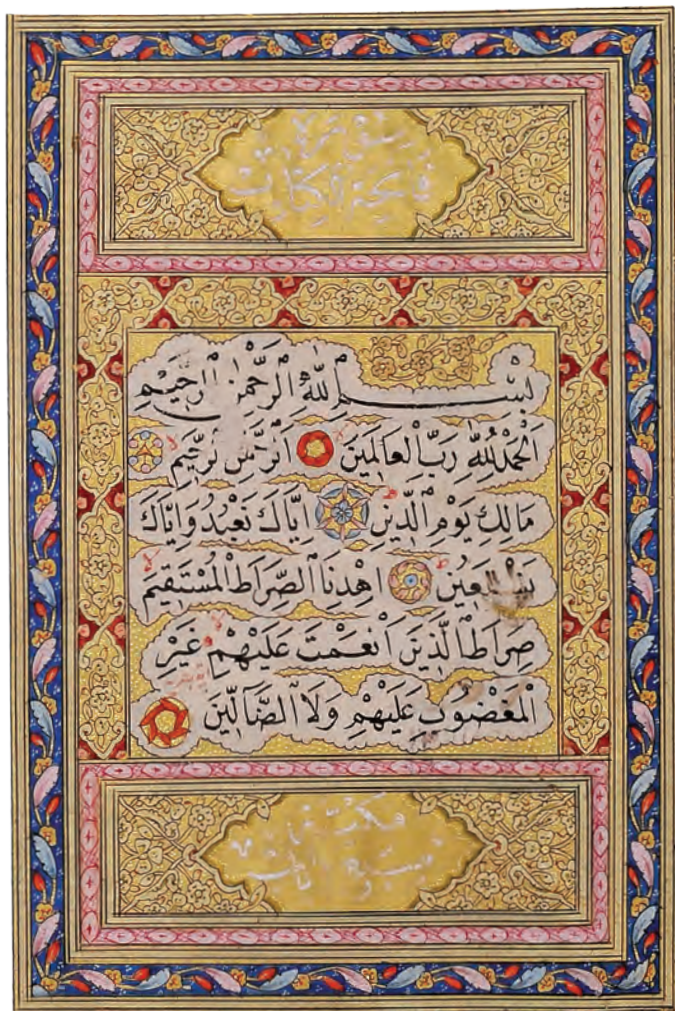 سورة
فاتحة الكتاب
بسم الله الرحمن الرحيم
اَلْحَمْدُ لِلّٰهِ رَبِّ الْعَالَمِينَ اَلرَّحْمٰنِ الرَّحِيمِ
مَالِكِ يَوْمِ الدِّينِ اِيَّاكَ نَعْبُدُ وَاِيَّاكَ
نَسْتَعِينُ اِهْدِنَا الصِّرَاطَ الْمُسْتَقِيمَ
صِرَاطَ الَّذِينَ اَنْعَمْتَ عَلَيْهِمْ غَيْرِ
الْمَغْضُوبِ عَلَيْهِمْ وَلَا الضَّالِّينَ